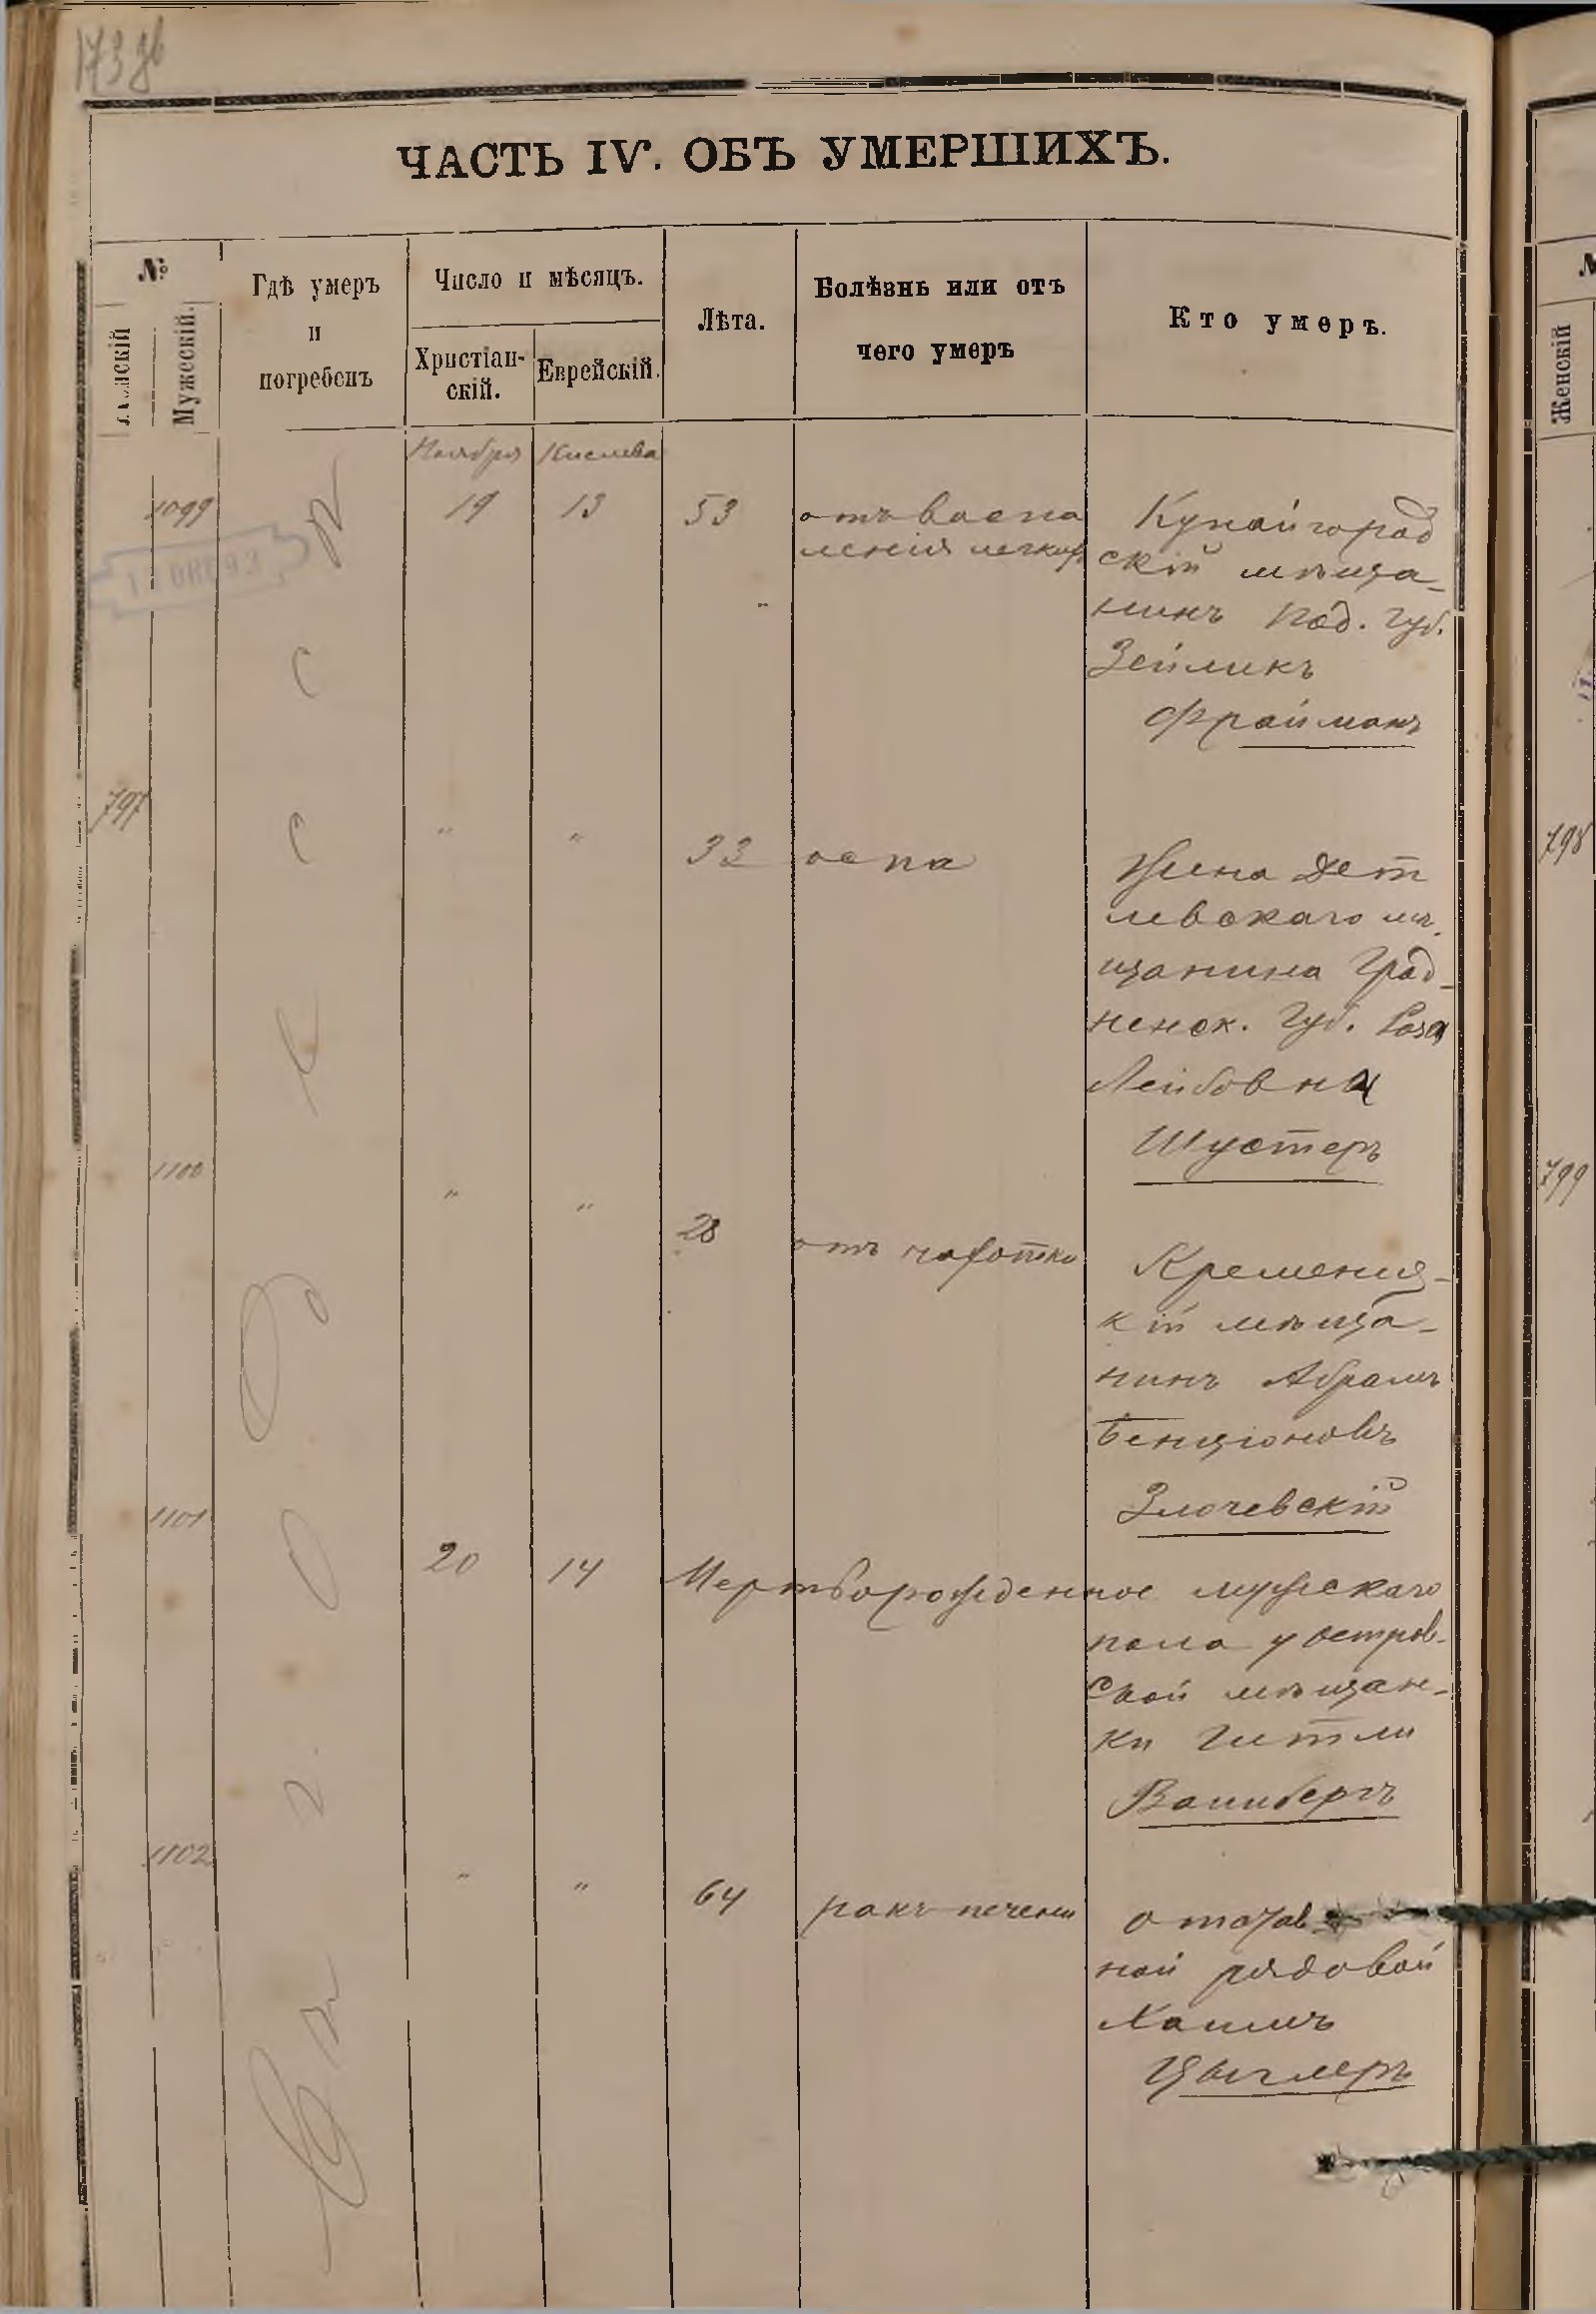 173 об
ЧАСТЬ IV. ОБЪ УМЕРШИХЪ.
№
Женскій
Мужескій.
Гдѣ умеръ
и
погребенъ
Число и мѣсяцъ.
Христіан-
скій.
Еврейскій.
Лѣта.
Болѣзнь или отъ
чего умеръ
Кто умеръ.
Ноября
Кислева
1099
19
13
53
отъ воспа
ленія легкихъ
Кунайгород
скій мѣща-
нинъ Под. губ.
Зейликъ
Фрайманъ
797
"
"
33
оспа
Жена
левскаго мѣ
щанина Град-
ненск. губ. Роза
Лейбовна
Шустеръ
1100
"
"
28
отъ чахотки
Кременец-
кій мѣща-
нинъ Абрамъ
Бенціоновъ
Злочевскій
1101
20
14
Мертворожденное мужескаго
пола у Остров-
ской мѣщан-
ки Гитли
Вайнбергъ
1102
"
"
64
ракъ печени
отстав
ной рядовой
Хаимъ
Цыглеръ
г. Одесса
17 DEC 93
№
Женскій
798
799